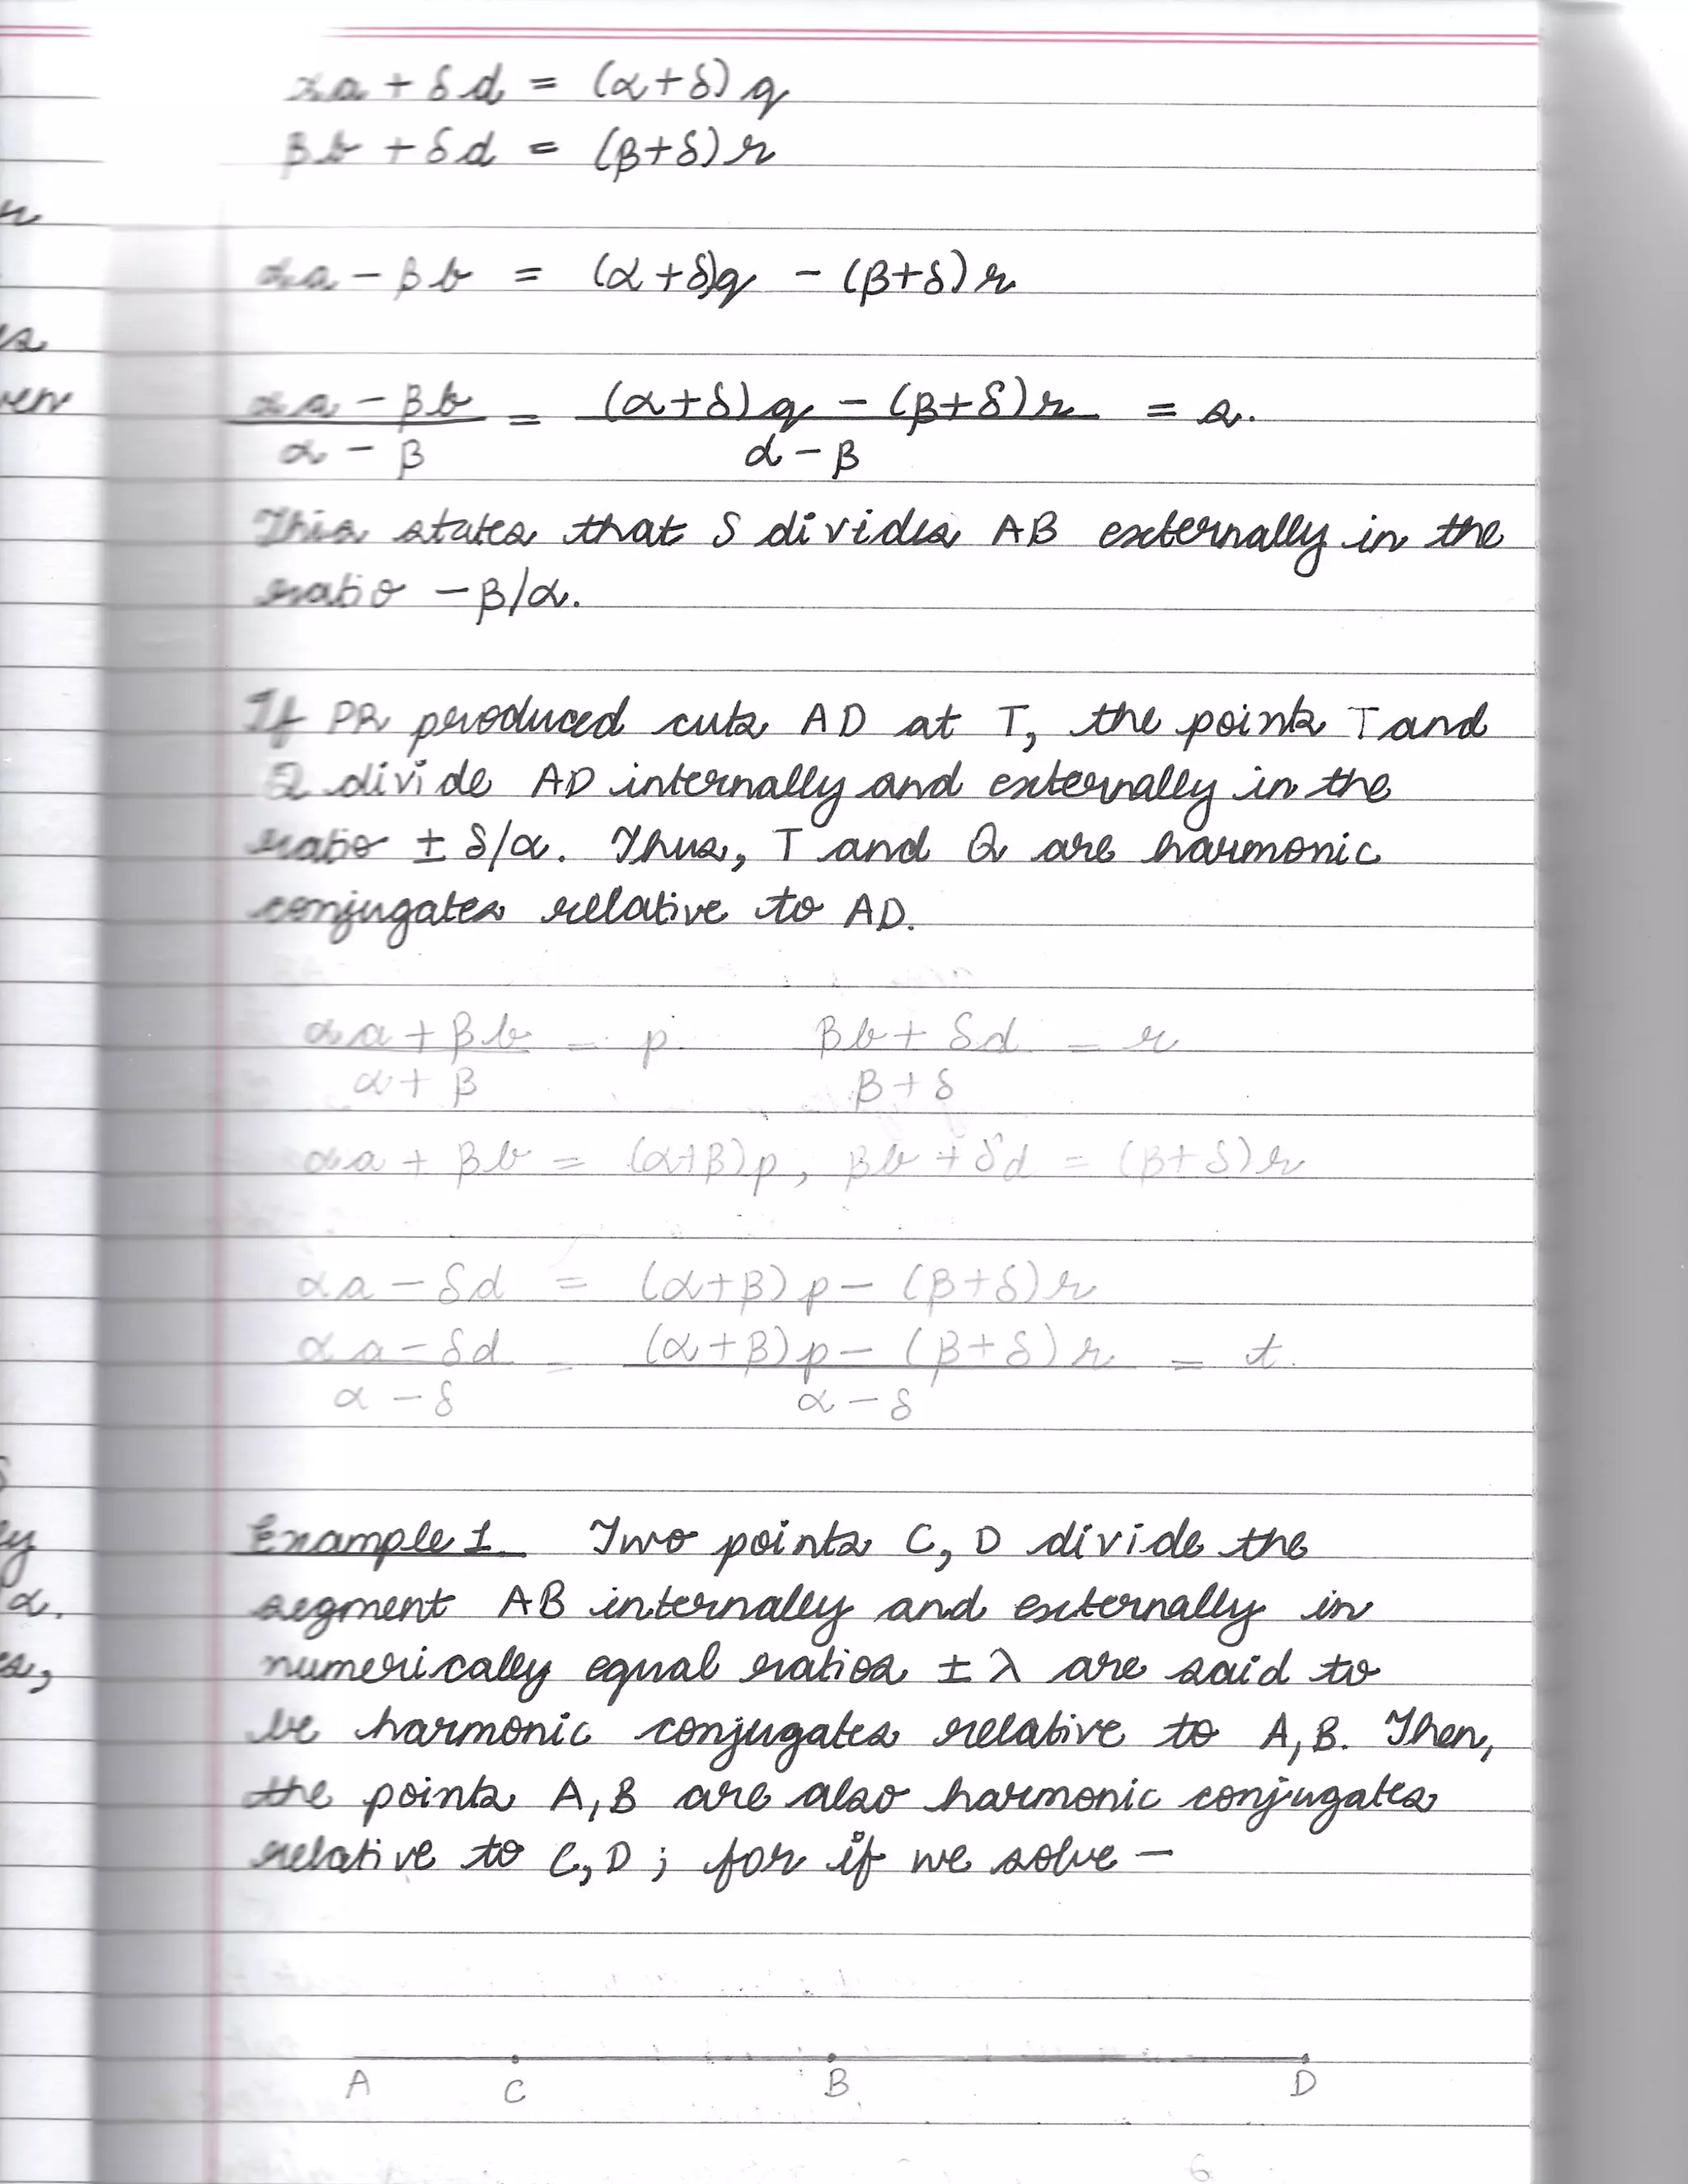 αa + δd = (α+δ) q
βb + δd = (β+δ) r
αa - βb = (α+δ)q - (β+δ) r
αa - βb = (α+δ) q - (β+δ) r = s.
α - β α - β
This states that S divides AB externally in the
ratio -β/α.
If PR produced cuts AD at T, the points T and
Q divide AD internally and externally in the
ratio ± δ/α. Thus, T and Q are harmonic
conjugates relative to AD.
αa + βb = p βb + δd = r
α + β β + δ
αa + βb = (α+β)p, βb + δd = (β+δ) r
αa - δd = (α+β) p - (β+δ) r
αa - δd = (α+β) p - (β+δ) r = t.
α - δ α - δ
Example 1 Two points C, D divide the
segment AB internally and externally in
numerically equal ratios ± λ are said to
be harmonic conjugates relative to A, B. Then,
the points A, B are also harmonic conjugates
relative to C, D ; for if we solve -
A C B D